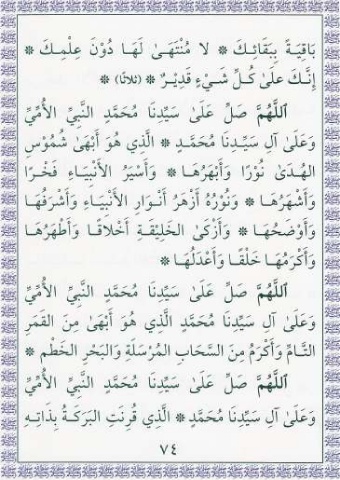 بَاقِيَةً بِبَقَائِكَ * لَا مُنْتَهَىٰ لَهَا دُوْنَ عِلْمِكَ *
إِنَّكَ عَلَىٰ كُلِّ شَيْءٍ قَدِيْرٌ * (ثلاثا) *
اَللَّهُمَّ صَلِّ عَلَىٰ سَيِّدِنَا مُحَمَّدٍ النَّبِيِّ الأُمِّيِّ
وَعَلَىٰ آلِ سَيِّدِنَا مُحَمَّدٍ * الَّذِي هُوَ أَبْهَىٰ شُمُوْسِ
الهُدَىٰ نُوْرًا وَأَبْهَرُهَا * وَأَسْيَرُ الأَنْبِيَاءِ فَخْرًا
وَأَشْهَرُهَا * وَنُوْرُهُ أَزْهَرُ أَنْوَارِ الأَنْبِيَاءِ وَأَشْرَفُهَا
وَأَوْضَحُهَا * وَأَزْكَىٰ الخَلِيْقَةِ أَخْلَاقًا وَأَطْهَرُهَا
وَأَكْرَمُهَا خَلْقًا وَأَعْدَلُهَا *
اَللَّهُمَّ صَلِّ عَلَىٰ سَيِّدِنَا مُحَمَّدٍ النَّبِيِّ الأُمِّيِّ
وَعَلَىٰ آلِ سَيِّدِنَا مُحَمَّدٍ الَّذِي هُوَ أَبْهَىٰ مِنَ القَمَرِ
التَّامِّ وَأَكْرَمُ مِنَ السَّحَابِ المُرْسَلَةِ وَالبَحْرِ الخَطْمِ *
اَللَّهُمَّ صَلِّ عَلَىٰ سَيِّدِنَا مُحَمَّدٍ النَّبِيِّ الأُمِّيِّ
وَعَلَىٰ آلِ سَيِّدِنَا مُحَمَّدٍ * الَّذِي قُرِنَتِ البَرَكَةُ بِذَاتِهِ
٧٤